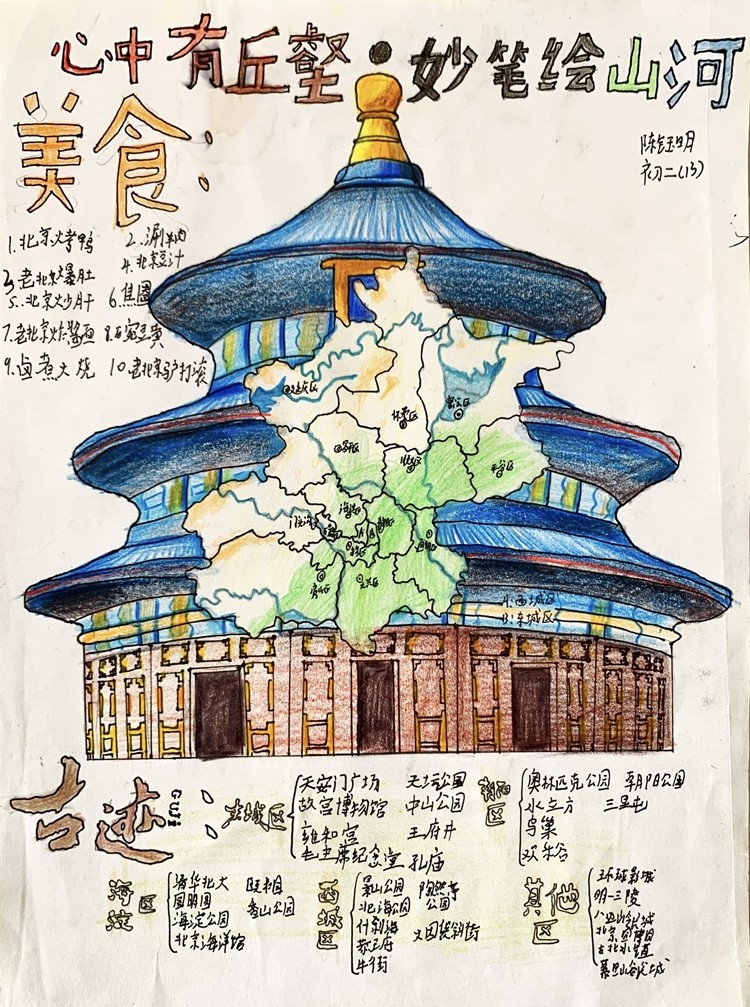 心中有丘壑·妙笔绘山河
美食:
陈钰明
初二(13)
1.北京烤鸭 2.涮羊肉
3.老北京爆肚 4.北京豆汁
5.北京炒肝 6.焦圈
7.老北京炸酱面 8.豌豆黄
9.卤煮火烧 10.老北京驴打滚
延庆区
怀柔区
密云区
昌平区
顺义区
平谷区
海淀区
门头沟区
房山区
大兴区
A:西城区
B:东城区
古迹:
GUJI
东城区
天安门广场 天坛公园
故宫博物馆 中山公园
雍和宫 王府井
毛主席纪念堂 孔庙
朝阳区
奥林匹克公园 朝阳公园
水立方 三里屯
鸟巢
欢乐谷
海淀区
清华北大
圆明园 香山公园
海淀公园
北京海洋馆
西城区
景山公园 陶然亭公园
北海公园
什刹海
恭王府
牛街
其他区
环球影城
明十三陵
八达岭长城
古北水镇
慕田峪长城